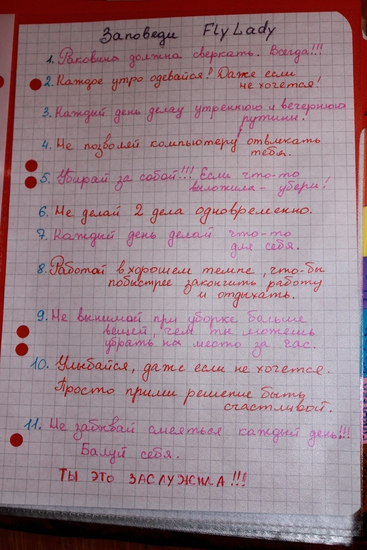 Заповеди FlyLady
1. Раковина должна сверкать. Всегда!!!
2. Каждое утро одевайся! Даже если
не хочется!
3. Каждый день делау утреннюю и вечернюю
рутины!
4. Не позволяй компьютеру отвлекать
тебя.
5. Убирай за собой!!! Если что-то
выложила - убери!
6. Не делай 2 дела одновременно.
7. Каждый день делай что-то
для себя.
8. Работай в хорошем темпе, что-бы
побыстрее закончить работу
и отдыхать.
9. Не вынимай при уборке больше
вещей, чем ты можешь
убрать на место за час.
10. Улыбайся, даже если не хочется.
Просто прими решение быть
счастливой.
11. Не забывай смеяться каждый день!!!
Балуй себя.
ТЫ ЭТО ЗАСЛУЖИЛА!!!